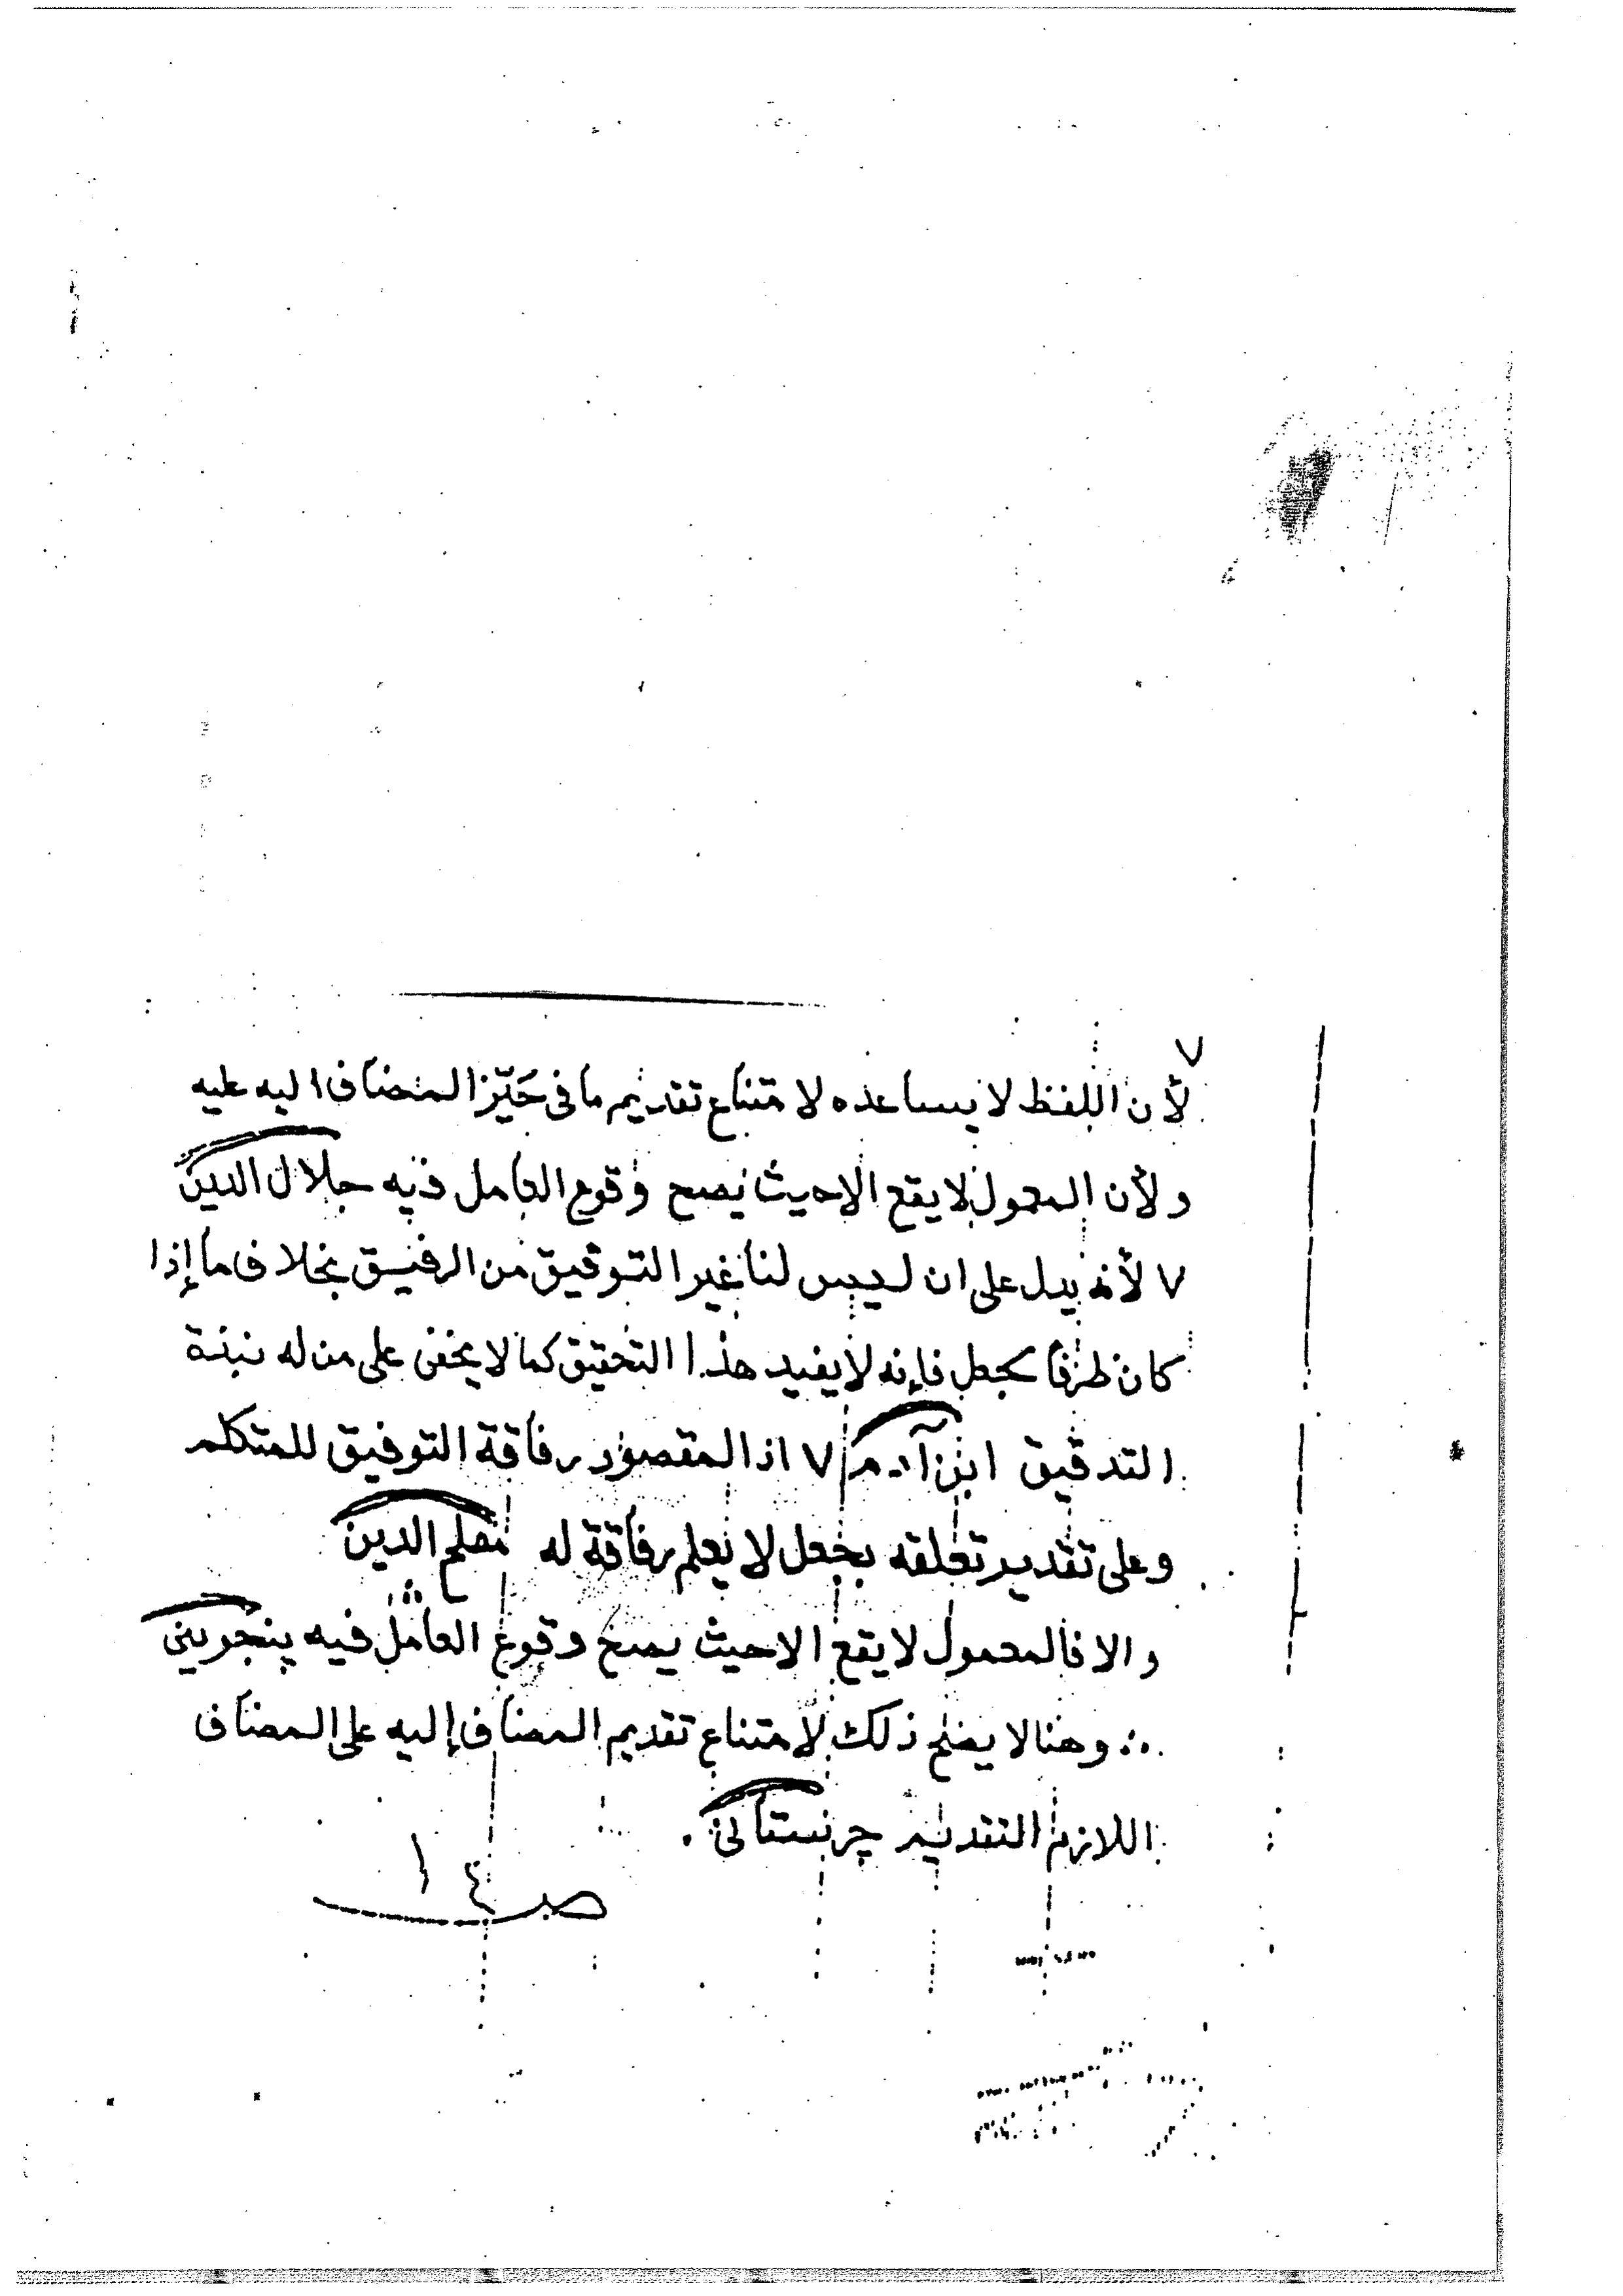 ٧
لأن اللفظ لا يساعده لا متناع تقديم ما فى حَيّز المضاف اليه عليه
ولأن المعمول لا يقع الا حيث يصح وقوع العامل فيه جلال الدين
٧ لأنه يدل على ان ليس لنا غير التوفيق من الرفيق بخلاف ما إذا
كان ظرفا لجعل فإنه لا يفيد هذا التحقيق كما لا يخفى على من له نبذة
التدقيق ابن آدم ٧ اذ المقصود رفاقة التوفيق للمتكلم
وعلى تقدير تعلقه بجعل لا يعلم رفاقة له مصلح الدين
والا فالمعمول لا يقع الا حيث يصح وقوع العامل فيه پنجوينى
وهنا لا يصلح ذلك لامتناع تقديم المضاف إليه على المضاف
اللازم التقديم چرستانى.
صـ ١٤